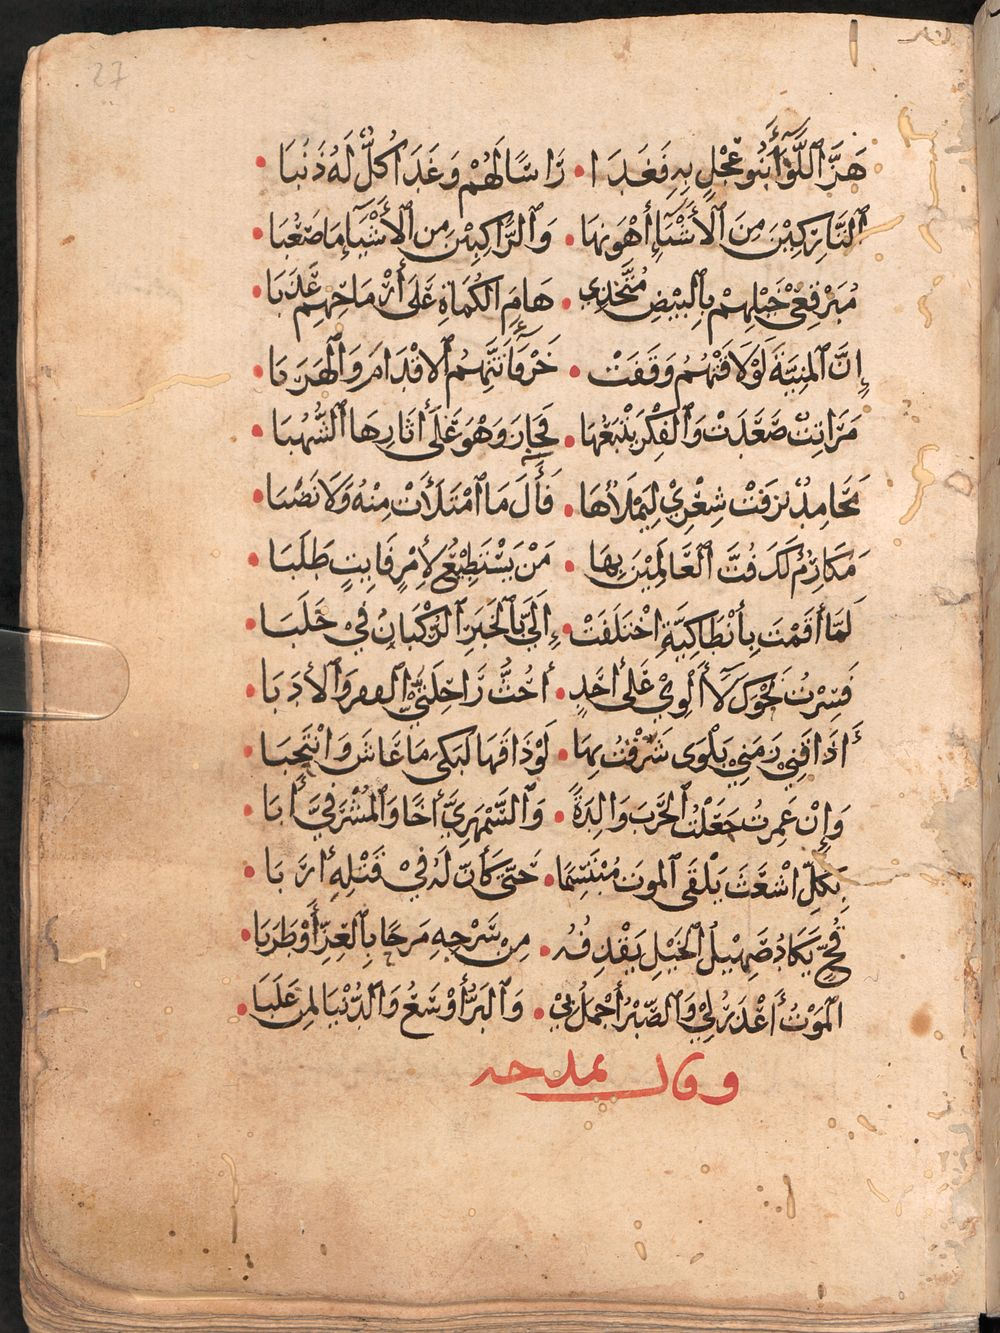 27
هَزَّ اللِّوَا بَنُو عِجْلٍ بِهِ فَغَدَا • رَاسًا لَهُمْ وَغَدَا كُلٌّ لَهُ ذَنَبَا •
التَّارِكِيْنَ مِنَ الْأَشْيَآءِ أَهْوَنَهَا • وَالرَّاكِبِيْنَ مِنَ الْأَشْيَآءِ مَا صَعُبَا •
مُبَرْقِعِيْ خَيْلِهِمْ بِالْبِيْضِ مُتَّخِذِي • هَامَ الكُمَاةِ عَلَى أَرْمَاحِهِمْ عَذَبَا •
إِنَّ الْمَنِيَّةَ لَوْ لَاقَتْهُمُ وَقَفَتْ • خَرْقَآءَ تَتَّهِمُ الاقْدَامَ وَالْهَرَبَا •
مَرَاتِبٌ صَعَّدَتْ وَالْفِكْرُ يَتْبَعُهَا • فَجَازَ وَهْوَ عَلَى أَثَارِهَا الشُّهُبَا •
مَحَامِدٌ نَزَفَتْ شِعْرِيْ لِيَمْلَأَهَا • فَأَلَ مَا امْتَلَأَتْ مِنْهُ وَلَا نَضَبَا •
مَكَارِمٌ لَكَ فُتَّ الْعَالَمِيْنَ بِهَا • مَنْ يَسْتَطِيْعُ لِأَمْرٍ فَايِتٍ طَلَبَا •
لَمَّا أَقَمْتَ بِأَنْطَاكِيَّةَ اخْتَلَفَتْ • إِلَيَّ بِالْخَبَرِ الرُّكْبَانُ فِيْ حَلَبَا •
فَسِرْتُ نَحْوَكَ لَآ أَلْوِي عَلَى أَحَدٍ • أَحُثُّ رَاحِلَتَيَّ الفقر وَالْأَدَبَا •
أَذَاقَنِيْ زَمَنِيْ بَلْوَى شَرِقْتُ بِهَا • لَوْ ذَاقَهَا لَبَكَى مَا عَاشَ وَانْتَحَبَا •
وَإِنْ عَمِرْتُ جَعَلْتُ الْحَرْبَ وَالِدَةً • وَالسَّمْهَرِيَّ أَخًا وَالْمَشْرَفِيَّ أَبَا •
بِكُلِّ اشْعَثَ يَلْقَى الْمَوْتَ مُبْتَسِمًا • حَتَّى كَأَنَّ لَهُ فِيْ قَتْلِهِ أَرَبَا •
قُحٍّ يَكَادُ صَهِيْلُ الْخَيْلِ يَقْذِفُهُ • مِنْ سَرْجِهِ مَرَحًا بِالْعِزِّ أَوْ طَرَبَا •
الْمَوْتُ أَعْذَرُ لِيْ وَالصَّبْرُ أَجْمَلُ بِيْ • وَالْبَرُّ أَوْسَعُ وَالدُّنْيَا لِمَنْ غَلَبَا •
وقال يمدحه